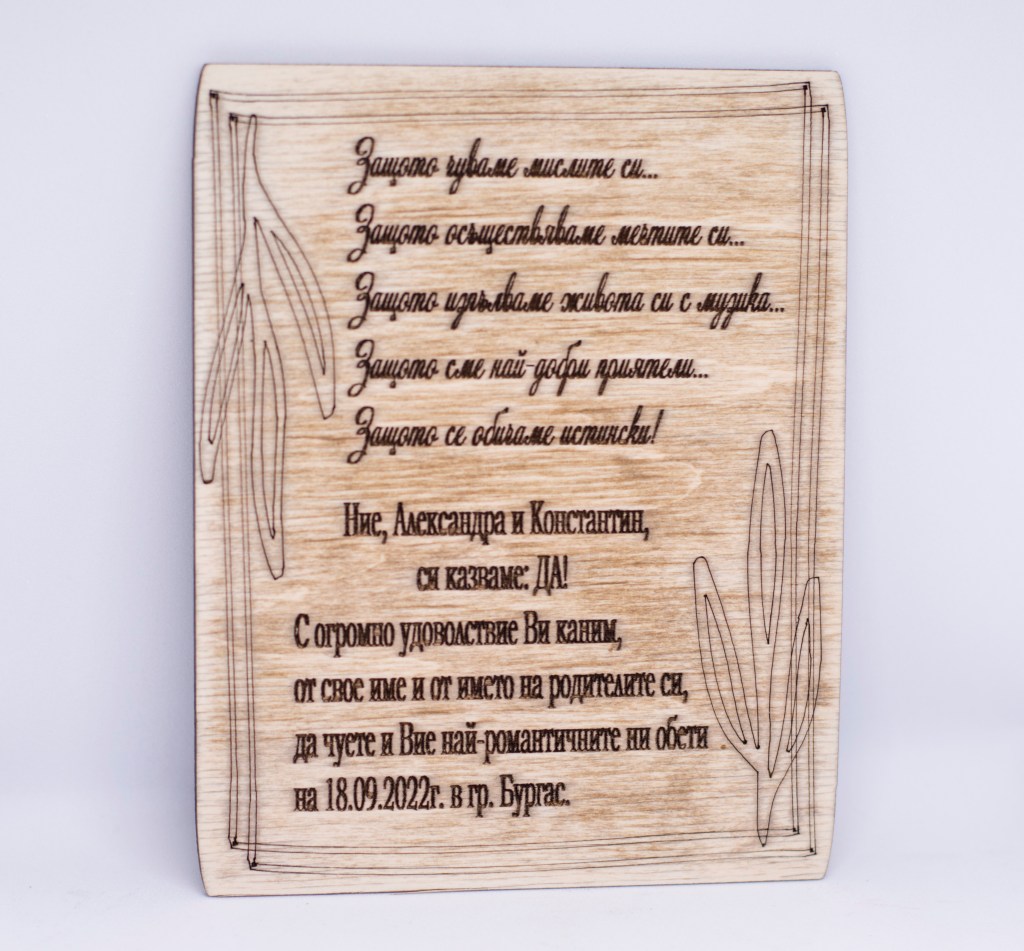 Защото чуваме мислите си...
Защото осъществяваме мечтите си...
Защото изпълваме живота си с музика...
Защото сме най-добри приятели...
Защото се обичаме истински!
Ние, Александра и Константин,
си казваме: ДА!
С огромно удоволствие Ви каним,
от свое име и от името на родителите си,
да чуете и Вие най-романтичните ни обети
на 18.09.2022г. в гр. Бургас.